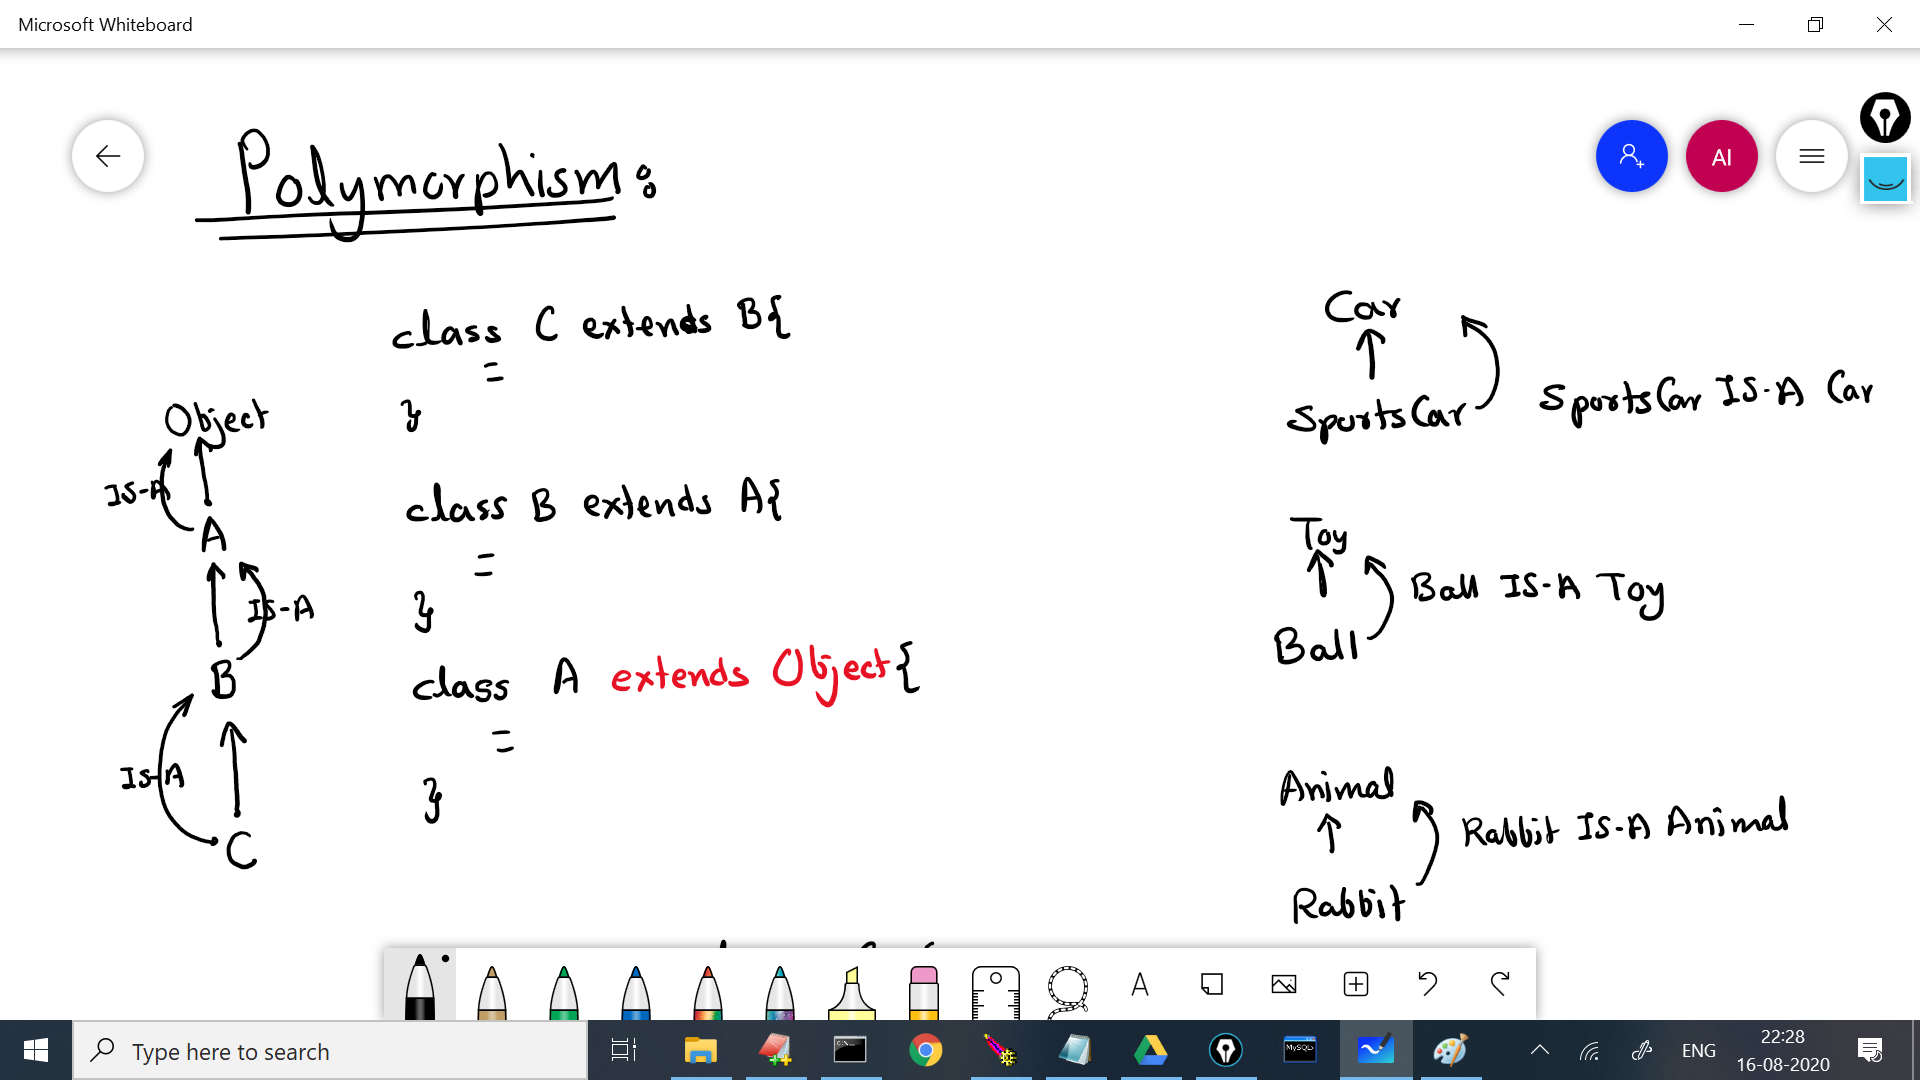 Microsoft Whiteboard
Polymorphism:
AI
class C extends B{
=
}
class B extends A{
=
}
class A extends Object{
=
}
Object
IS-A
A
IS-A
B
IS-A
C
Car
SportsCar
SportsCar IS-A Car
Toy
Ball IS-A Toy
Ball
Animal
Rabbit IS-A Animal
Rabbit
A
Type here to search
MySQL
ENG
22:28
16-08-2020